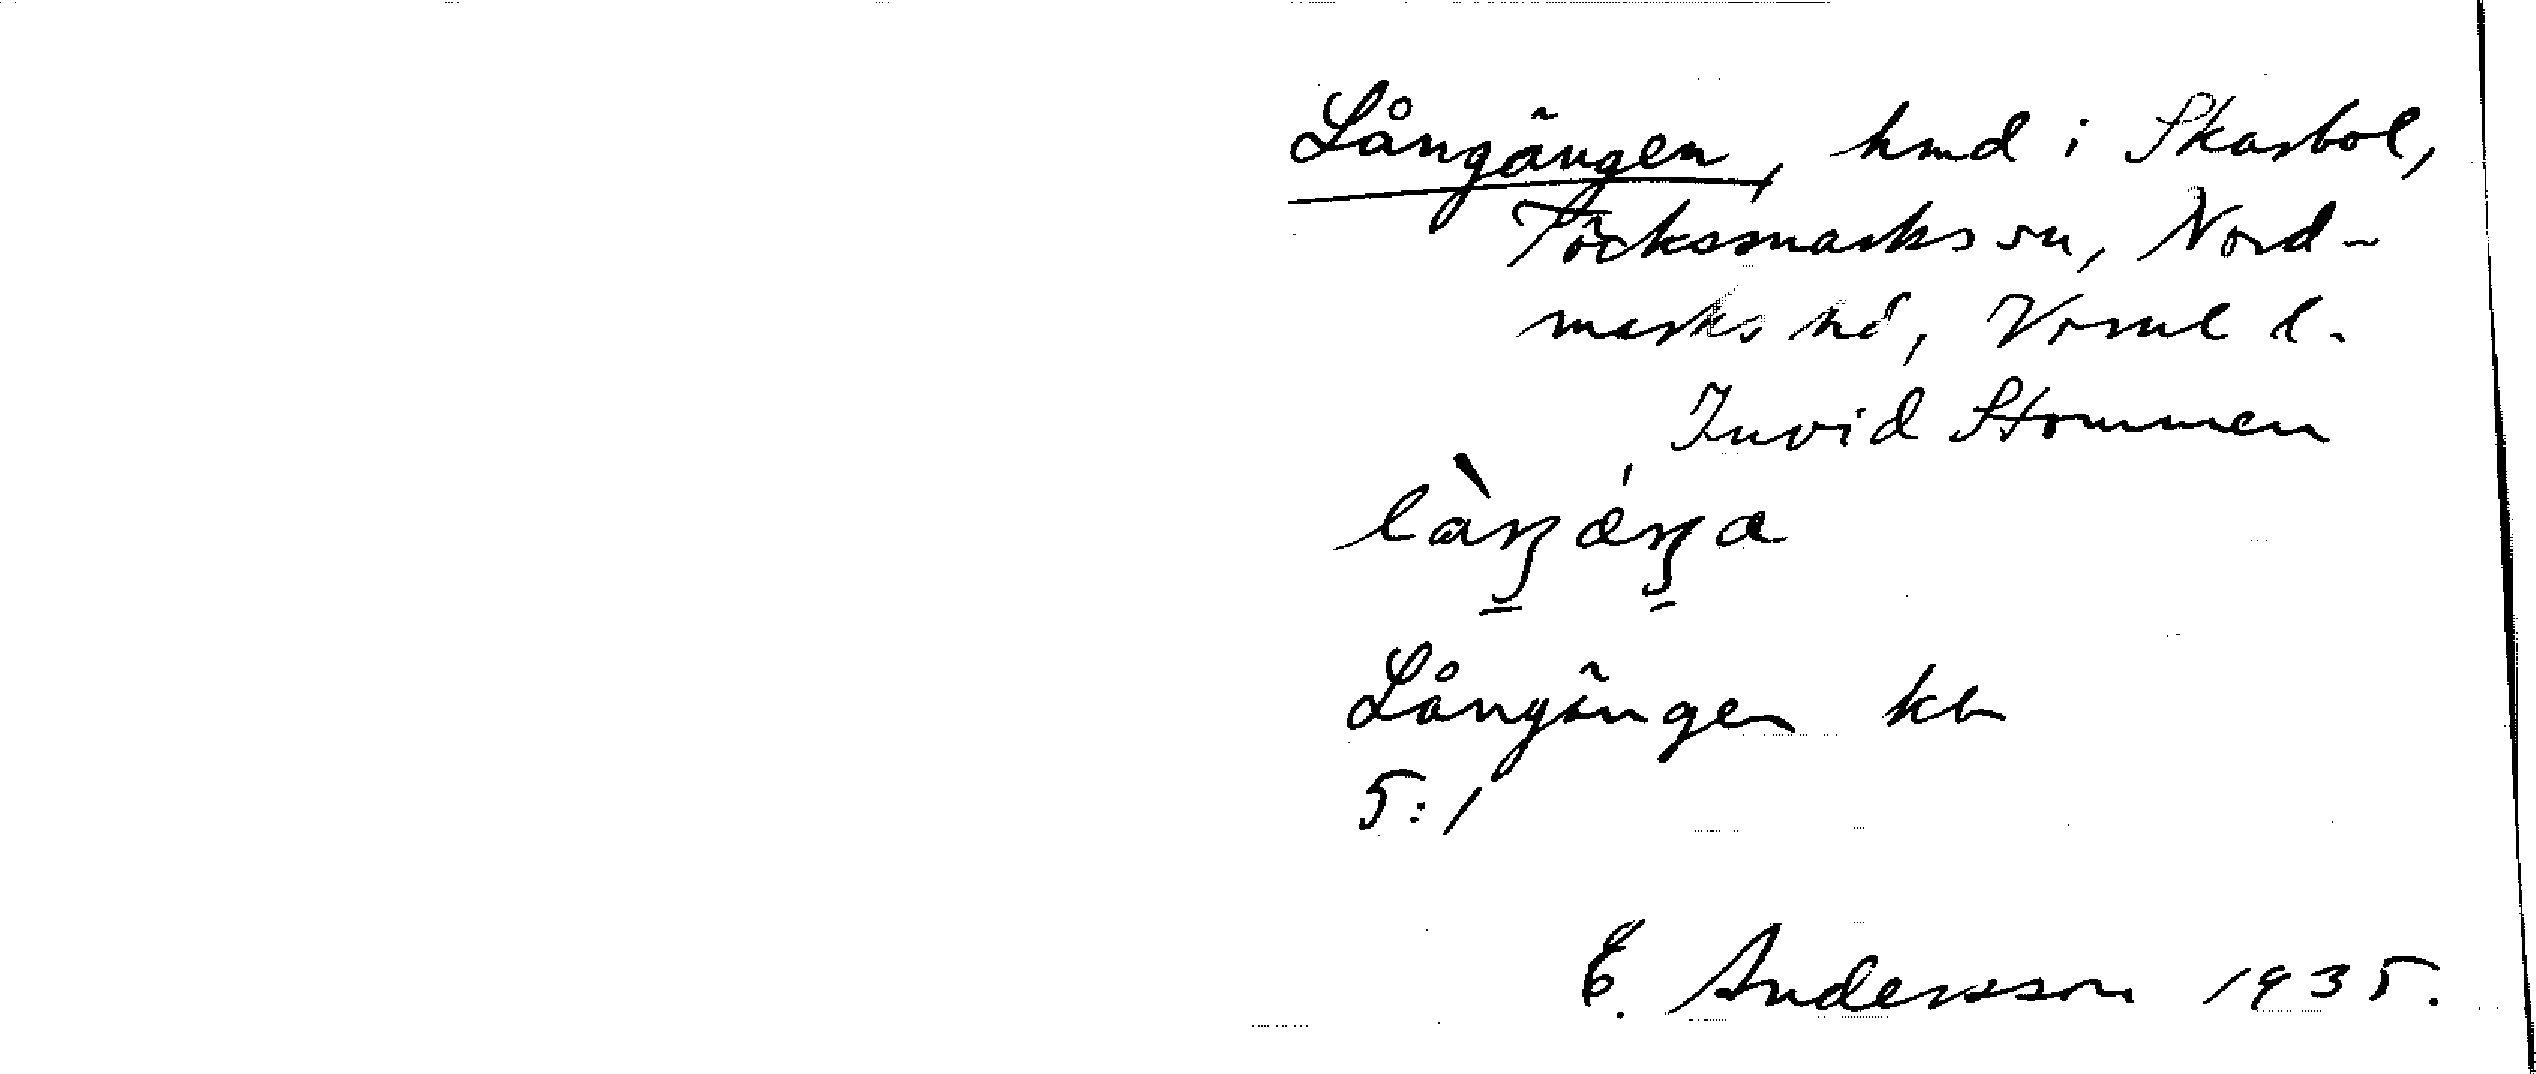 Långängen, hmd i Skarbol,
Töcksmarks sn, Nord-
marks hd, Vrml l.
Invid Stommen
Långängen kb
5:1
E. Andersson 1935.